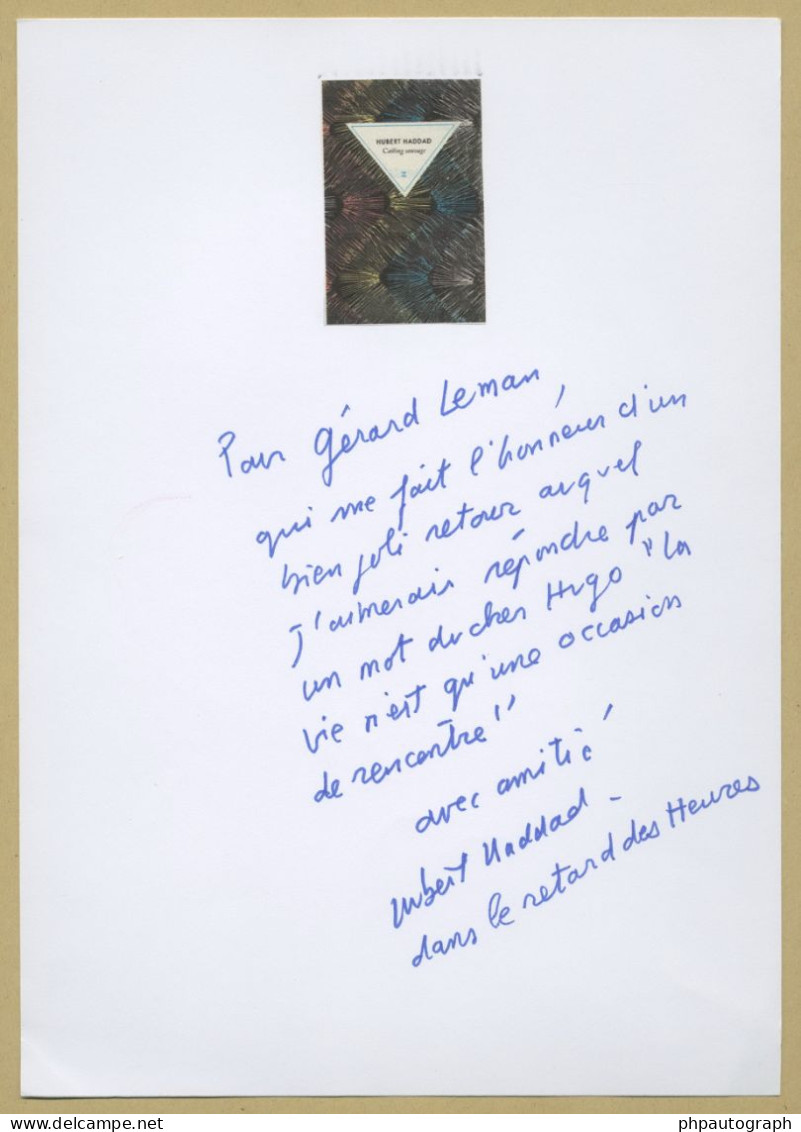 HUBERT HADDAD
Casting sauvage
Z
Pour Gérard Leman,
qui me fait l'honneur d'un
bien joli retour auquel
j'aimerais répondre par
un mot du cher Hugo "la
vie n'est qu'une occasion
de rencontre"
avec amitié
Hubert Haddad -
dans le retard des Heures
phpautograph